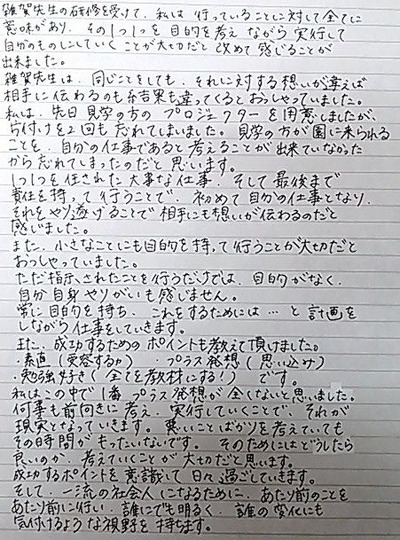 雑賀先生の研修を受けて、私は行っていることに対して全てに
意味があり、その1つ1つを目的を考えながら実行して
自分のものにしていくことが大切だと改めて感じることが
出来ました。
雑賀先生は、同じことをしても、それに対する想いが違えば
相手に伝わるのも結果も違ってくるとおっしゃていました。
私は、先日見学の方のプロジェクターを用意しましたが、
片付けを2回も忘れてしまいました。見学の方が園に来られる
ことを、自分の仕事であると考えることが出来ていなかった
から忘れてしまったのだと思います。
1つ1つを任された大事な仕事、そして最後まで
責任を持って行うことで、初めて自分の仕事となり、
それをやり遂げることで相手にも想いが伝わるのだと
感じました。
また、小さなことにも目的を持って行うことが大切だと
おっしゃっていました。
ただ指示されたことを行うだけでは、目的がなく、
自分自身やりがいも感じません。
常に目的を持ち、これをするためには…と計画を
しながら仕事をしていきます。
また、成功するためのポイントも教えて頂けました。
・素直(受容する力) ・プラス発想(思い込み)
・勉強好き(全てを教材にする!) です。
私はこの中で1番プラス発想が全くないと思いました。
何事も前向きに考え、実行していくことで、それが
現実となっていきます。悪いことばかりを考えていても
その時間がもったいないです。そのためにはどうしたら
良いのか、考えていくことが大切だと思います。
成功するポイントを意識して日々過ごしていきます。
そして、一流の社会人になるために、あたり前のことを
あたり前に行い、誰にでも明るく、誰の変化にも
気付けるような視野を持ちます。